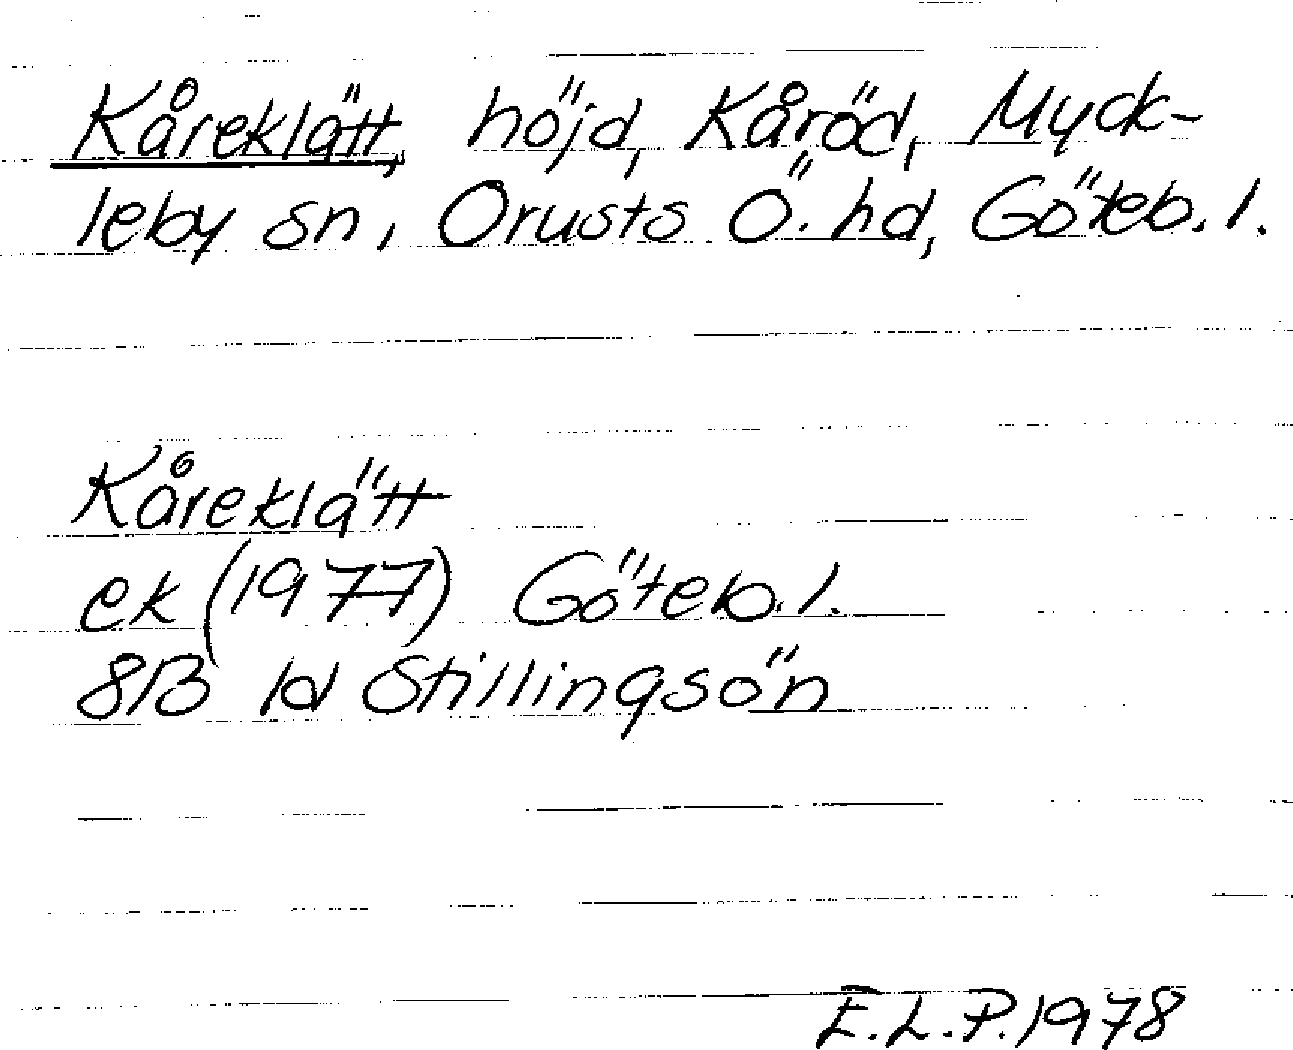 Kåreklätt, höjd, Kåröd, Myck-
leby sn, Orusts Ö. hd, Göteb. l.
Kåreklätt
ek (1977) Göteb. l.
8B 1d Stillingsön
E.L.P. 1978